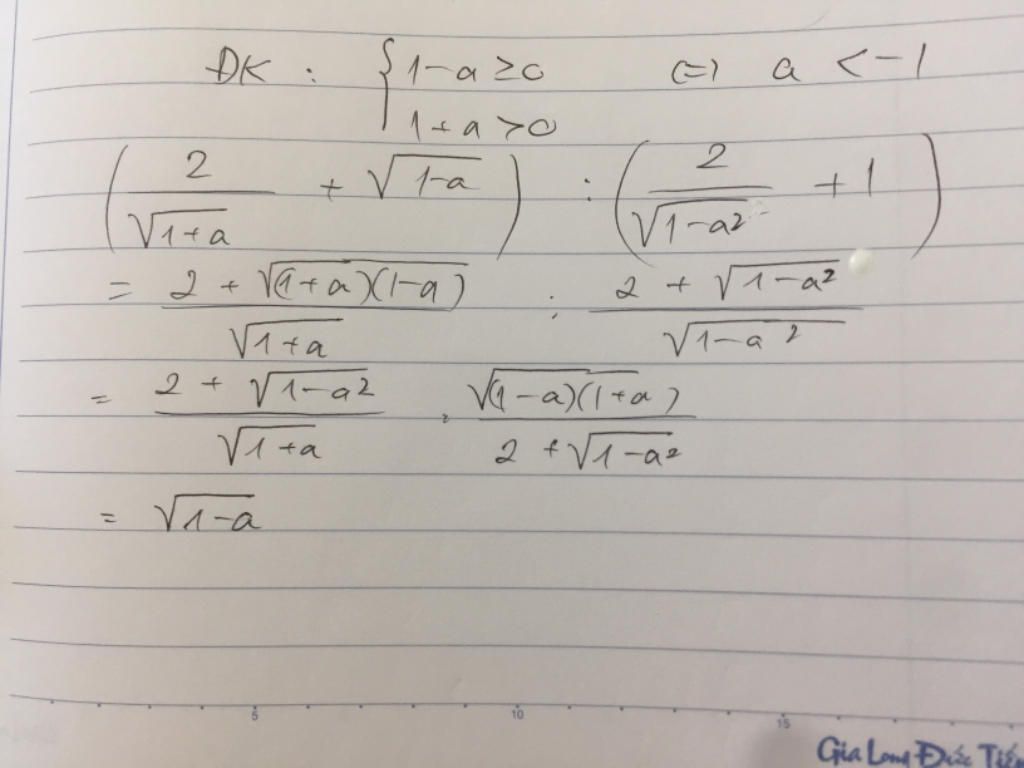 ĐK : { 1-a ≥ 0 1+a > 0 (=) a < -1
( 2/√(1+a) + √(1-a) ) : ( 2/√(1-a²) + 1 )
= (2 + √((1+a)(1-a)))/√(1+a) : (2 + √(1-a²))/√(1-a²)
= (2 + √(1-a²))/√(1+a) . √((1-a)(1+a))/(2 + √(1-a²))
= √(1-a)
5 10 15
Gia Long Đức Tiến